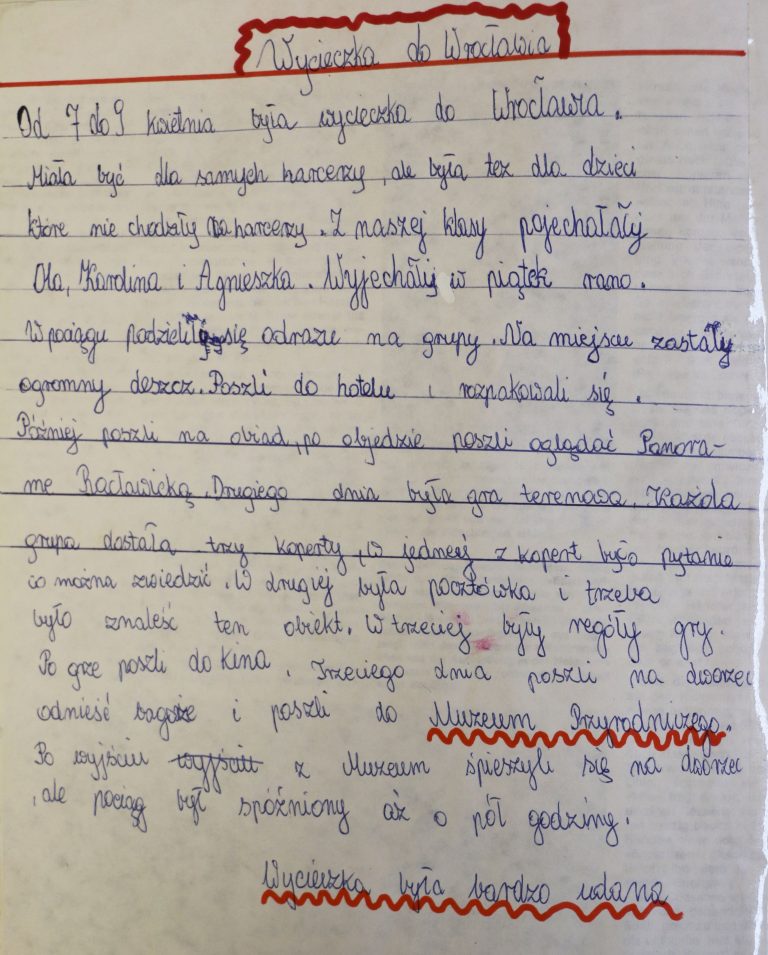 Wycieczka do Wrocławia
Od 7 do 9 kwietnia była wycieczka do Wrocławia.
Miała być dla samych harcerzy, ale była też dla dzieci
które nie chodzały na harcerzy. Z naszej klasy pojechałały
Ola, Karolina i Agnieszka. Wyjechały w piątek rano.
W pociągu podzieliły się odrazu na grupy. Na miejscu zastały
ogromny deszcz. Poszli do hotelu i rozpakowali się.
Później poszli na obiad, po objedzie poszli oglądać Panora-
me Racławicką. Drugiego dnia była gra terenawa. Każda
grupa dostała trzy koperty, w jednej z kopert było pytanie
co można zwiedzić. W drugiej była pocztówka i trzeba
było znaleść ten obiekt. W trzeciej były regóły gry.
Po grze poszli do kina. Trzeciego dnia poszli na dworzec
odnieść bagaże i poszli do Muzeum Przyrodniczego.
Po wyjściu wyjściu z Muzeum śpieszyli się na dworzec
, ale pociąg był spóźniony aż o pół godziny.
Wycieczka była bardzo udana